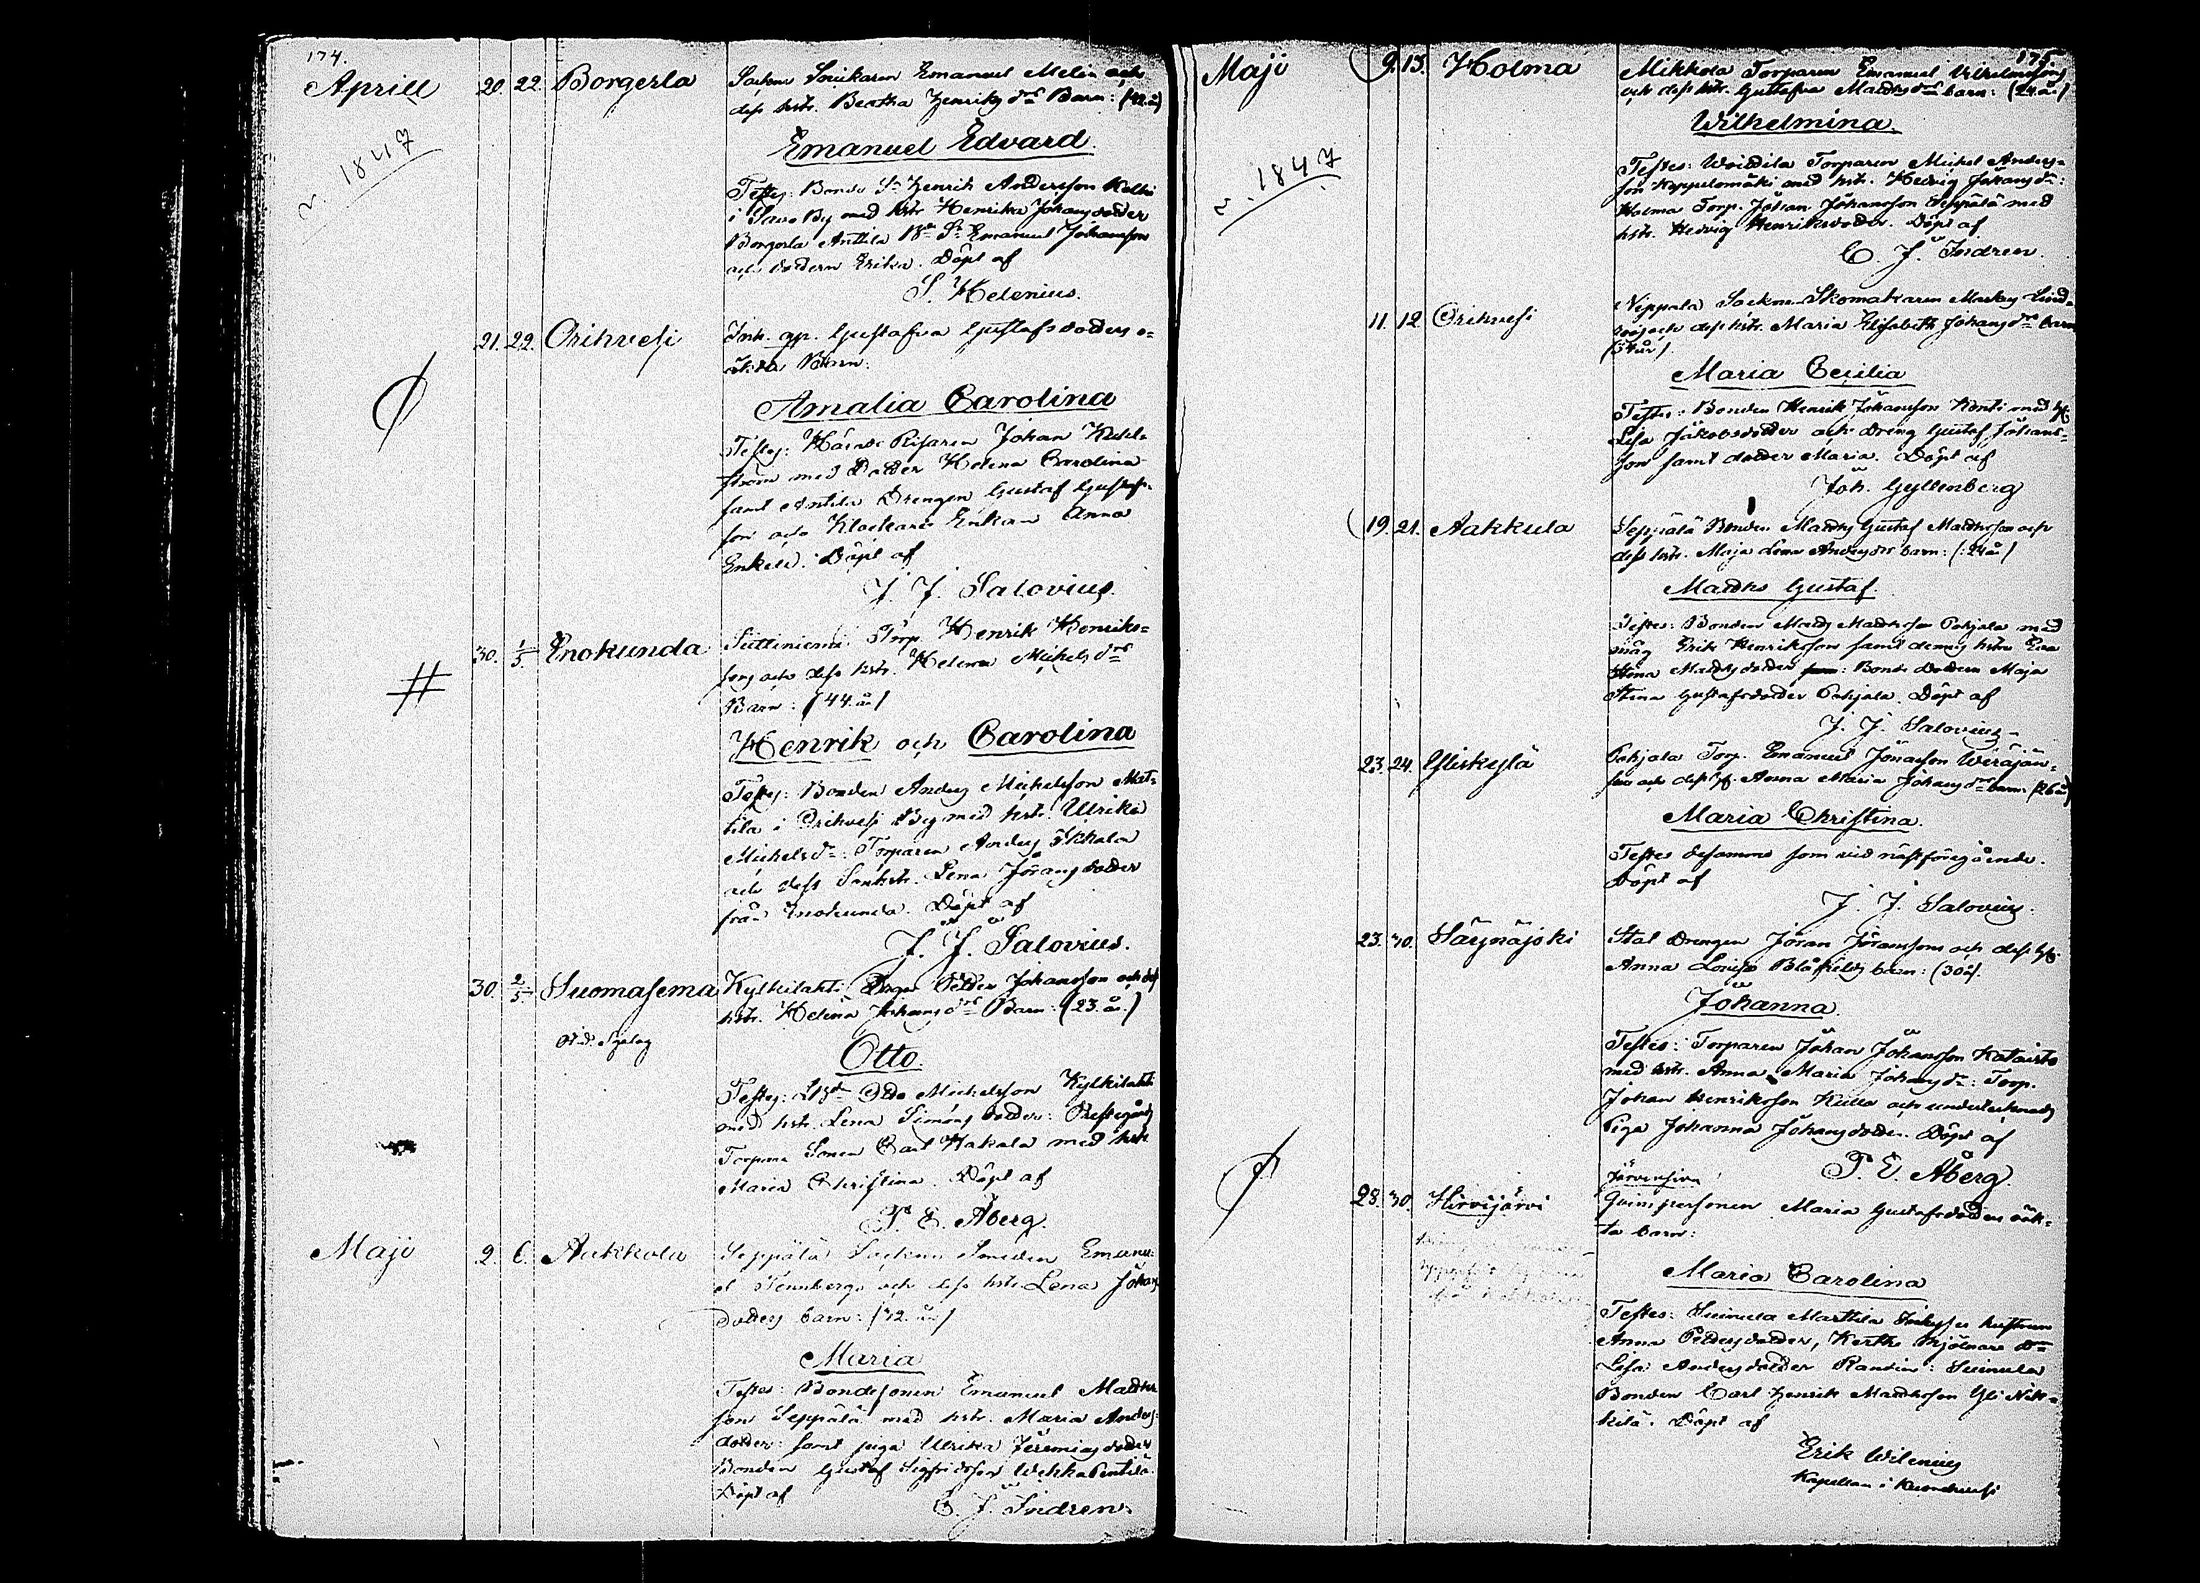 174.
Aprill
v. 1847
20. 22. Borgerla
Sockne Snickaren Emanuel Melin och
dess hstr. Beatha Henriks drs Barn: (42 år)
Emanuel Edvard.
Testes: Bonde S. Henrik Andersson Kolki
i Savo By med hstr Henrika Johans dotter
Borgerla Anttila Bde S. Emanuel Johansson
och dottern Erika. Döpt af
S. Helenius.
21. 22. Orihvesi
Inh. qp. Gustafva Gustafs dotters o-
äkta Barn:
Amalia Carolina
Testes: Johan
ström med Dotter Helena Carolina
samt Antila Drengen Gustaf Gustafs-
son och Klockare Enkan Anna
Enkeli. Döpt af
J. J. Salovius.
30. 1/5. Enokunda
Suttiniemi Torp. Henrik Henriks-
sons och dess hstr. Helena Michels drs
Barn: (44 år)
Henrik och Carolina
Testes: Bonden Anders Michelsson Mat-
tila i Orihvesi By med hstr. Ulrika
Michelsdr: Torparen Anders Ikkala
och dess hstr. Lena Jörans dotter
från Enokunda. Döpt af
J. J. Salovius.
30. 2/5. Suomasema
Kylkilahti Petter Johansson och dess
hstr. Helena Johans drs Barn: (23 år.)
Otto.
Testes: Otto Michelsson Kylkilahti
med hstr. Lena Simons dotter: Prestgårds
Torpare Sonen Carl Hakala med hstr
Maria Christina. Döpt af
P. E. Åberg.
Maji
2. 6. Aakkola
Seppälä Sockne Smeden Emanu-
el Tennbergs och dess hstr. Lena Johans
dotters barn: (32 år)
Maria
Testes: Bondesonen Emanuel Matths-
son Seppälä med hstr. Maria Anders-
dotter: samt piga Ulrika Jeremias dotter
Bonden Gustaf Sigfridsson Uckka Pentila.
Döpt af
C. J. Indren.
175.
Maji
v. 1847
9. 13. Holma
Mikkola Torparen Emanuel Vilhelmssons
och dess hstr. Gustafva Matths drs barn: (24 år)
Wilhelmina.
Testes: Woitila Torparen Michel Anders-
son Keppelomäki med hstr. Hedvig Johans dr:
Holma Torp. Johan Johansson Seppälä med
hstr. Hedvig Henriksdotter. Döpt af
C. J. Indren.
11. 12. Orihvesi
Nippala Sockne Skomakaren Lind-
och dess hstr. Maria Elisabeth Johans drs barn
(34 år).
Maria Cecilia
Testes: Bonden Henrik Johansson Konti med h.
Lisa Jakobsdotter och Dreng Gustaf Johans-
son samt dotter Maria. Döpt af
Joh. Gyllenberg
19. 21. Aakkula
Seppälä Bonden Matts Gustaf Matthsson och
dess hstr. Maja Lena Anders drs barn: (24 år)
Matths Gustaf.
Testes: Bonden Matts Matthsson Pohjala med
måg Erik Henriksson samt dennes hstr Eva
Stina Matths dotter: Bonde Dottren Maja
Stina Gustafsdotter Pohjala. Döpt af
J. J. Salovius.
23. 24. Yliskylä
Pohjala Torp. Emanuel Jonasson Weräjän-
suu och dess h. Anna Maria Johans drs barn: (26 år)
Maria Christina.
Testes desamma som vid nästföregående.
Döpt af
J. J. Salovius.
23. 30. Säynäjoki
Stal Drengen Jöran Göranssons och dess h.
Anna Lovisa Blåfields barn: (30 å).
Johanna.
Testes: Torparen Johan Johansson Kataisto
med hstr. Anna Maria Johans dr: Torp.
Johan Henriksson Killo och undertecknads
Piga Johanna Johans dotter. Döpt af
P. E. Åberg.
28. 30. Hirvijärvi
Järvensivu
Qvinspersonen Maria Gustafsdotters oäk-
ta barn:
Maria Carolina
Testes: Suinula Marttila hustrun
Anna Petters dotter, Mjölnare
Lisa Anders dotter: Suinula
Bonden Carl Henrik Matthsson Yli Nik-
kilä. Döpt af
Erik Wilenius
Kapellan i Kuorehvesi